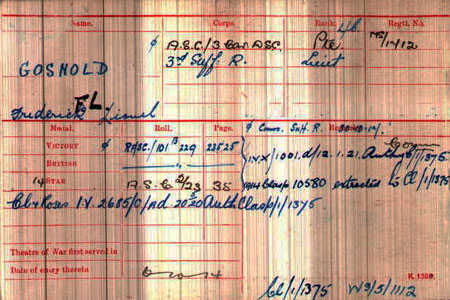 Name. Corps. Rank. Regtl. No.
GOSNOLD
A.S.C/3 Cav ASC. Pte MS/1412
3rd Suff. R. Lieut
Frederick Lionel
FL
Medal. Roll. Page.
Comm. Suff. R. 30-10-14
VICTORY RASC/101 B 229 22525
BRITISH
IVX/1001.d/12.1.21. Auth
14 STAR A.S.C 2/23 35
1914 Clasp 10580 extracted Cl/1/1375
Cl & Roses I.V. 2685/C/nd. 20.5.20 Auth Clasp/1/1375
Theatre of War first served in
Date of entry therein
K. 1380.
Cl/1/1375 W9/5/1112